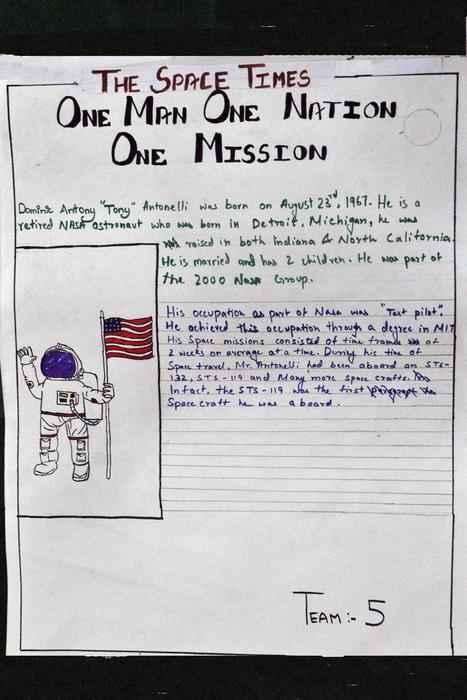 THE SPACE TIMES
ONE MAN ONE NATION
ONE MISSION
Dominic Antony "Tony" Antonelli was born on August 23rd, 1967. He is a
retired NASA astronaut who was born in Detroit, Michigan, he was
raised in both Indiana & North California.
He is married and has 2 children. He was part of
the 2000 Nasa Group.
His occupation as part of Nasa was "Test pilot".
He achieved this occupation through a degree in MIT
His Space missions consisted of time frames of
2 weeks on average at a time. During his time of
Space travel, Mr. Antonelli had been aboard on STS-
132, STS-119 and Many more space crafts.
Infact, the STS-119 was the first
Space craft he was aboard.
TEAM :- 5